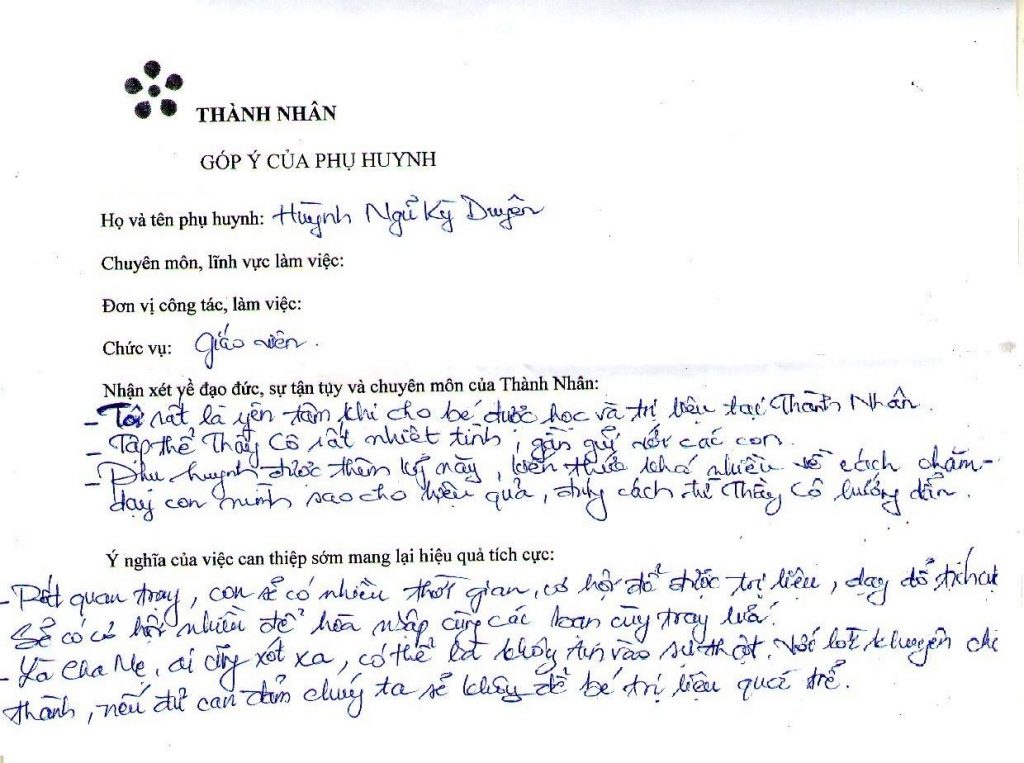 THÀNH NHÂN
GÓP Ý CỦA PHỤ HUYNH
Họ và tên phụ huynh: Huỳnh Ngữ Kỳ Duyên
Chuyên môn, lĩnh vực làm việc:
Đơn vị công tác, làm việc:
Chức vụ: Giáo viên.
Nhận xét về đạo đức, sự tận tụy và chuyên môn của Thành Nhân:
- Tôi rất là yên tâm khi cho bé được học và trị liệu tại Thành Nhân.
- Tập thể Thầy Cô rất nhiệt tình, gần gũi với các con.
- Phụ huynh được thêm kỹ này, kiến thức khá nhiều về cách chăm -
dạy con mình sao cho hiệu quả, đúng cách từ Thầy Cô hướng dẫn.
Ý nghĩa của việc can thiệp sớm mang lại hiệu quả tích cực:
- Rất quan trọng, con sẽ có nhiều thời gian, cơ hội để được trị liệu, dạy dỗ tích cực
Sẽ có cơ hội nhiều để hòa nhập cùng các bạn cùng trang lứa.
- Là Cha Mẹ, ai cũng xót xa, có thể là không tin vào sự thật. Với lời khuyên chân
thành, nếu đủ can đảm chúng ta sẽ không để bé trị liệu quá trễ.